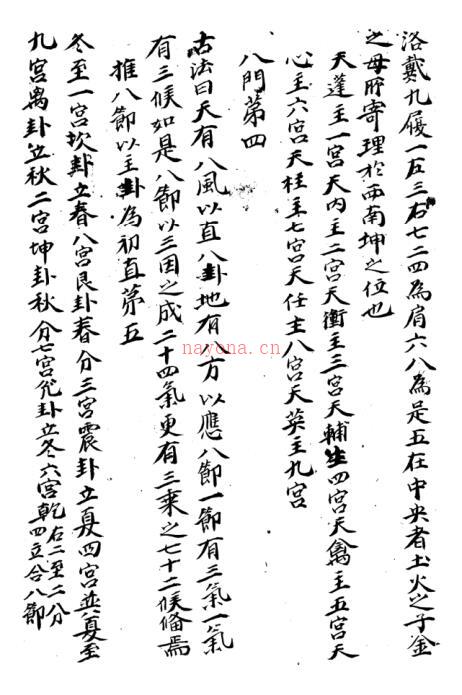 洛戴九履一左三右七二四為肩六八為是五在中央者土火之子金
之母所寄理於西南坤之位也
天蓬主一宮天內主二宮天衝主三宮天輔主四宮天禽主五宮天
心主六宮天柱主七宮天任主八宮天英主九宮
八門第四
古法曰天有八風以直八卦地有八方以應八節一節有三氣一氣
有三候如是八節以三因之成二十四氣更有三乘之七十二候備焉
推八節以主卦為初直第五
冬至一宮坎卦立春八宮艮卦春分三宮震卦立夏四宮巽夏至
九宮离卦立秋二宮坤卦秋分七宮兌卦立冬六宮乾右二至二分四立合八節
nayona.cn